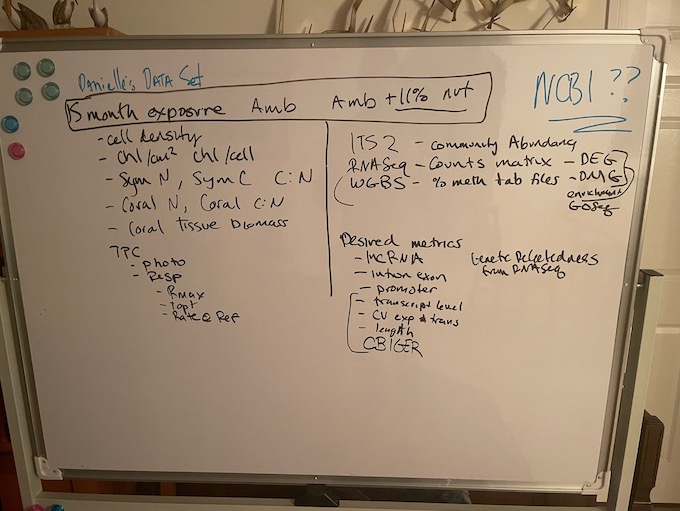 Danielle's DATA Set
NCBI ??
15 month exposure Amb Amb + 11% nut
- cell density
- chl/cm² chl/cell
- Sym N, Sym C C:N
- Coral N, Coral C:N
- Coral tissue biomass
TPC
- photo
- Resp
- Rmax
- Topt
- Rate @ Ref
ITS2 - community Abundanc
RNASeq - Counts matrix - DEG
WGBS - % meth tab files - DMG
enrichment
GOSeq
Desired metrics
- lncRNA
- intron exon
- promoter
- transcript level
- CV exp & trans
- length
GBIGER
Genetic Relatedness
from RNASeq